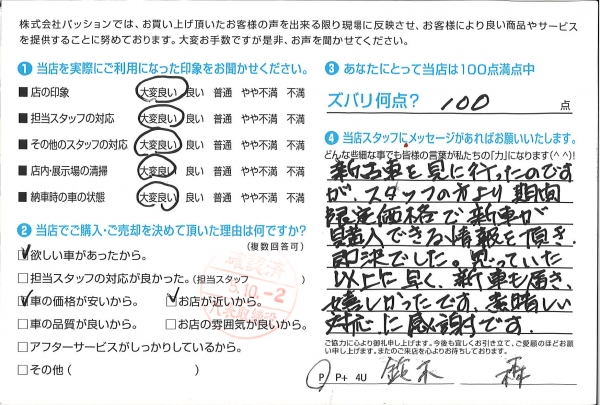 株式会社パッションでは、お買い上げ頂いたお客様の声を出来る限り現場に反映させ、お客様により良い商品やサービス
を提供することに努めております。大変お手数ですが是非、お声を聞かせてください。
❶ 当店を実際にご利用になった印象をお聞かせください。
■ 店の印象 大変良い 良い 普通 やや不満 不満
■ 担当スタッフの対応 大変良い 良い 普通 やや不満 不満
■ その他のスタッフの対応 大変良い 良い 普通 やや不満 不満
■ 店内・展示場の清掃 大変良い 良い 普通 やや不満 不満
■ 納車時の車の状態 大変良い 良い 普通 やや不満 不満
❷ 当店でご購入・ご売却を決めて頂いた理由は何ですか?
(複数回答可)
欲しい車があったから。
□担当スタッフの対応が良かった。(担当スタッフ )
車の価格が安いから。 お店が近いから。
□車の品質が良いから。 □お店の雰囲気が良いから。
□アフターサービスがしっかりしているから。
□その他( )
確認済
5.10.-2
❸ あなたにとって当店は100点満点中
ズバリ何点? 100 点
❹ 当店スタッフにメッセージがあればお願いいたします。
どんな些細な事でも皆様の言葉が私たちの「力」になります(^ ^)!
新古車を見に行ったのです
が、スタッフの方より期間
限定価格で新車が
購入できる情報を頂き、
即決でした。思っていた
以上に早く、新車も届き、
嬉しかったです。素晴しい
対応に感謝です。
ご協力に心より御礼申し上げます。今後も宜しくお引き立て、ご愛顧のほどお願
い申し上げます。またのご来店を心よりお待ちしております。
P P+ 4U 鈴木 森